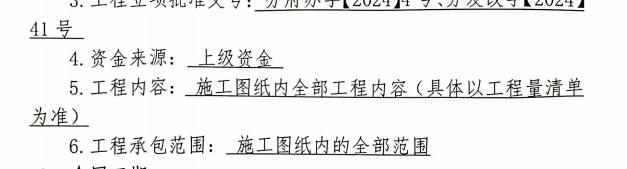 3.工程立项批准文号：分府办字【2024】4号、分发改字【2024】
41号
4.资金来源：上级资金
5.工程内容：施工图纸内全部工程内容（具体以工程量清单
为准）
6.工程承包范围：施工图纸内的全部范围